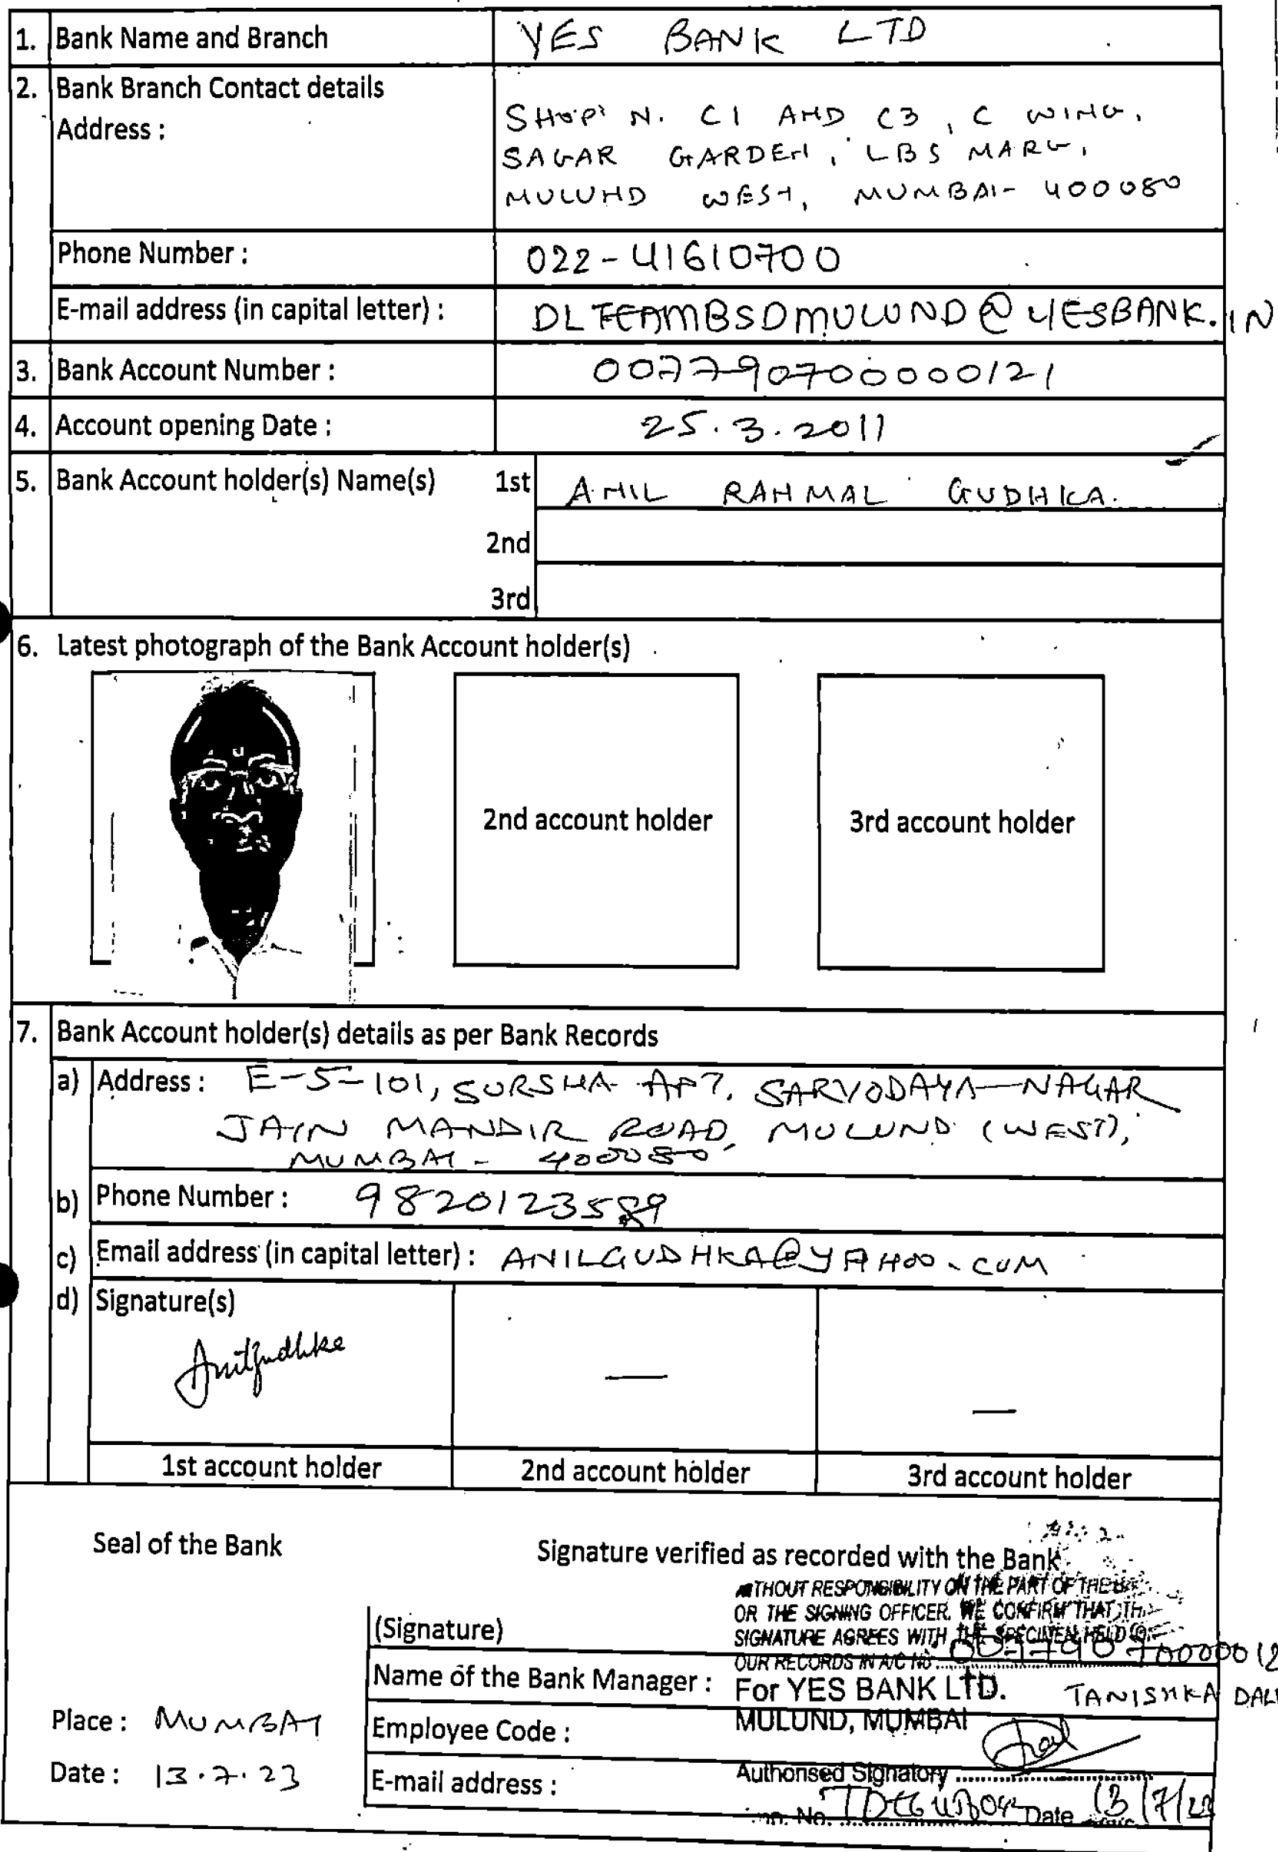 1. Bank Name and Branch YES BANK LTD
2. Bank Branch Contact details
Address : SHOP N. C1 AND C3, C WING,
SAGAR GARDEN, LBS MARG,
MULUND WEST, MUMBAI- 400080
Phone Number : 022-41610700
E-mail address (in capital letter) : DLTEAMBSDMULUND@YESBANK.IN
3. Bank Account Number : 007790700000121
4. Account opening Date : 25.3.2011
5. Bank Account holder(s) Name(s) 1st ANIL RAHMAL GUDHKA.
2nd
3rd
6. Latest photograph of the Bank Account holder(s)
2nd account holder
3rd account holder
7. Bank Account holder(s) details as per Bank Records
a) Address : E-5-101, SURSHA APT, SARVODAYA NAGAR
JAIN MANDIR ROAD, MULUND (WEST),
MUMBAI - 400080
b) Phone Number : 9820123589
c) Email address (in capital letter) : ANILGUDHKA@YAHOO.COM
d) Signature(s)
Anilgudhka
1st account holder 2nd account holder 3rd account holder
Seal of the Bank
Signature verified as recorded with the Bank
WITHOUT RESPONSIBILITY ON THE PART OF THE
OR THE SIGNING OFFICER. WE CONFIRM THAT
(Signature)
SIGNATURE AGREES WITH THE SPECIMEN HELD
OUR RECORDS IN A/C No
Name of the Bank Manager : For YES BANK LTD. TANISHKA
Place : MUMBAI
Employee Code : MULUND, MUMBAI
Date : 13.7.23
E-mail address : Authorised Signatory
No. Date 13/7/23